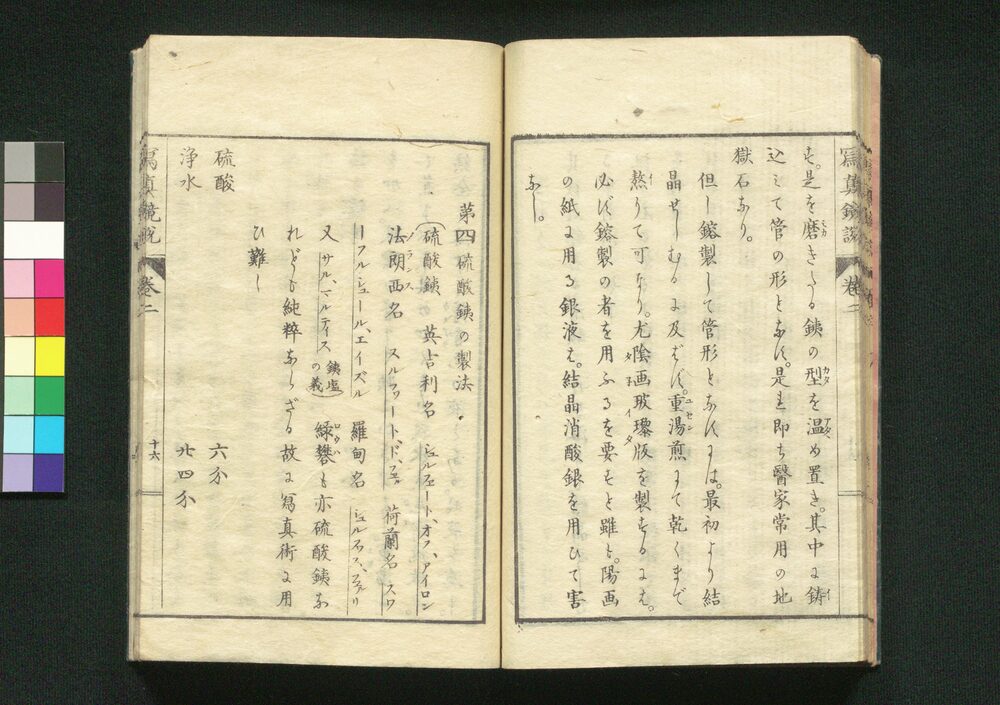 す。是を磨きたる鉄の型を温め置き。其中に鋳
込みて管の形となす。是即ち醫家常用の地
獄石なり。
但し鎔製して管形となすは。最初より結
晶せしむるに及ばず。重湯煎にて乾くまで
熬りて可なり。尤陰画玻瓈版を製するには。
必ず鎔製の者を用ふるを要すと雖も。陽画
の紙に用る銀液は。結晶消酸銀を用ひて害
なし。
寫真鏡説 巻二
第四 硫酸鉄の製法
硫酸鉄 英吉利名 シュルフェート、オフ、アイロン
法朗西名 スルファート、ド、フェル 荷蘭名 スワ
ーフルシュール、エイズル 羅甸名 シュルファス、フェルリ
又 サル、マルティス 鉄塩の義 緑礬も亦硫酸鉄な
れども純粋ならざる故に寫真術に用
ひ難し
硫酸 六分
浄水 廿四分
寫真鏡説 巻二 十六